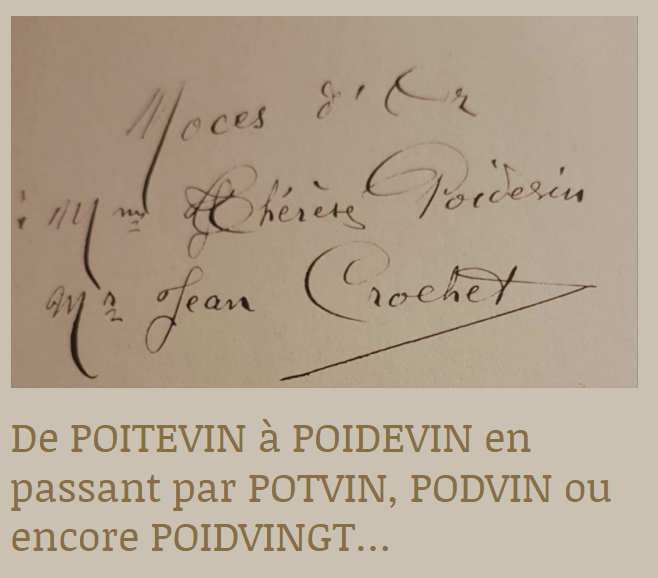 Noces d'Or
: Mme Thérèse Poidevin
Mr Jean Crochet
De POITEVIN à POIDEVIN en
passant par POTVIN, PODVIN ou
encore POIDVINGT...